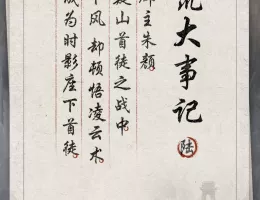 大事记
陆
郡主朱颜
山首徒之战中
下风却顿悟凌云术
成为时影座下首徒